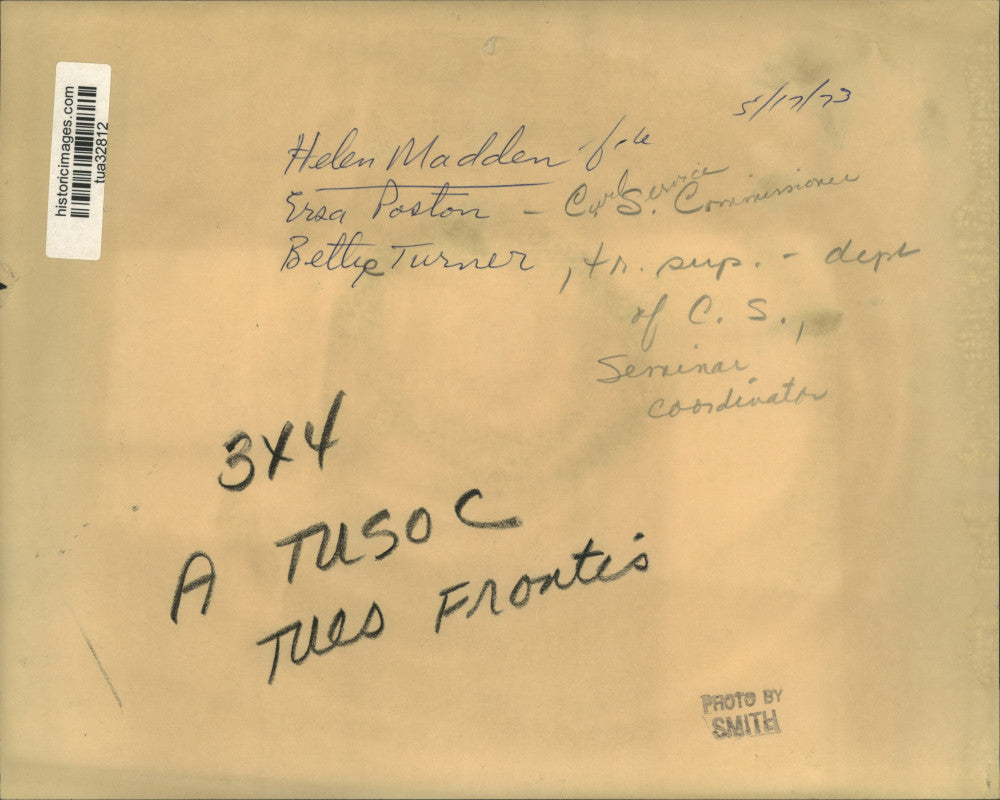 historicimages.com
tua32812
5/17/73
Helen Madden - file
Ersa Poston - Civil Service
S. Commissioner
Bettye Turner, tr. sup. - dept
of C. S.,
Seminar
coordinator
3x4
A TUSOC
TUES Frontis
PHOTO BY
SMITH